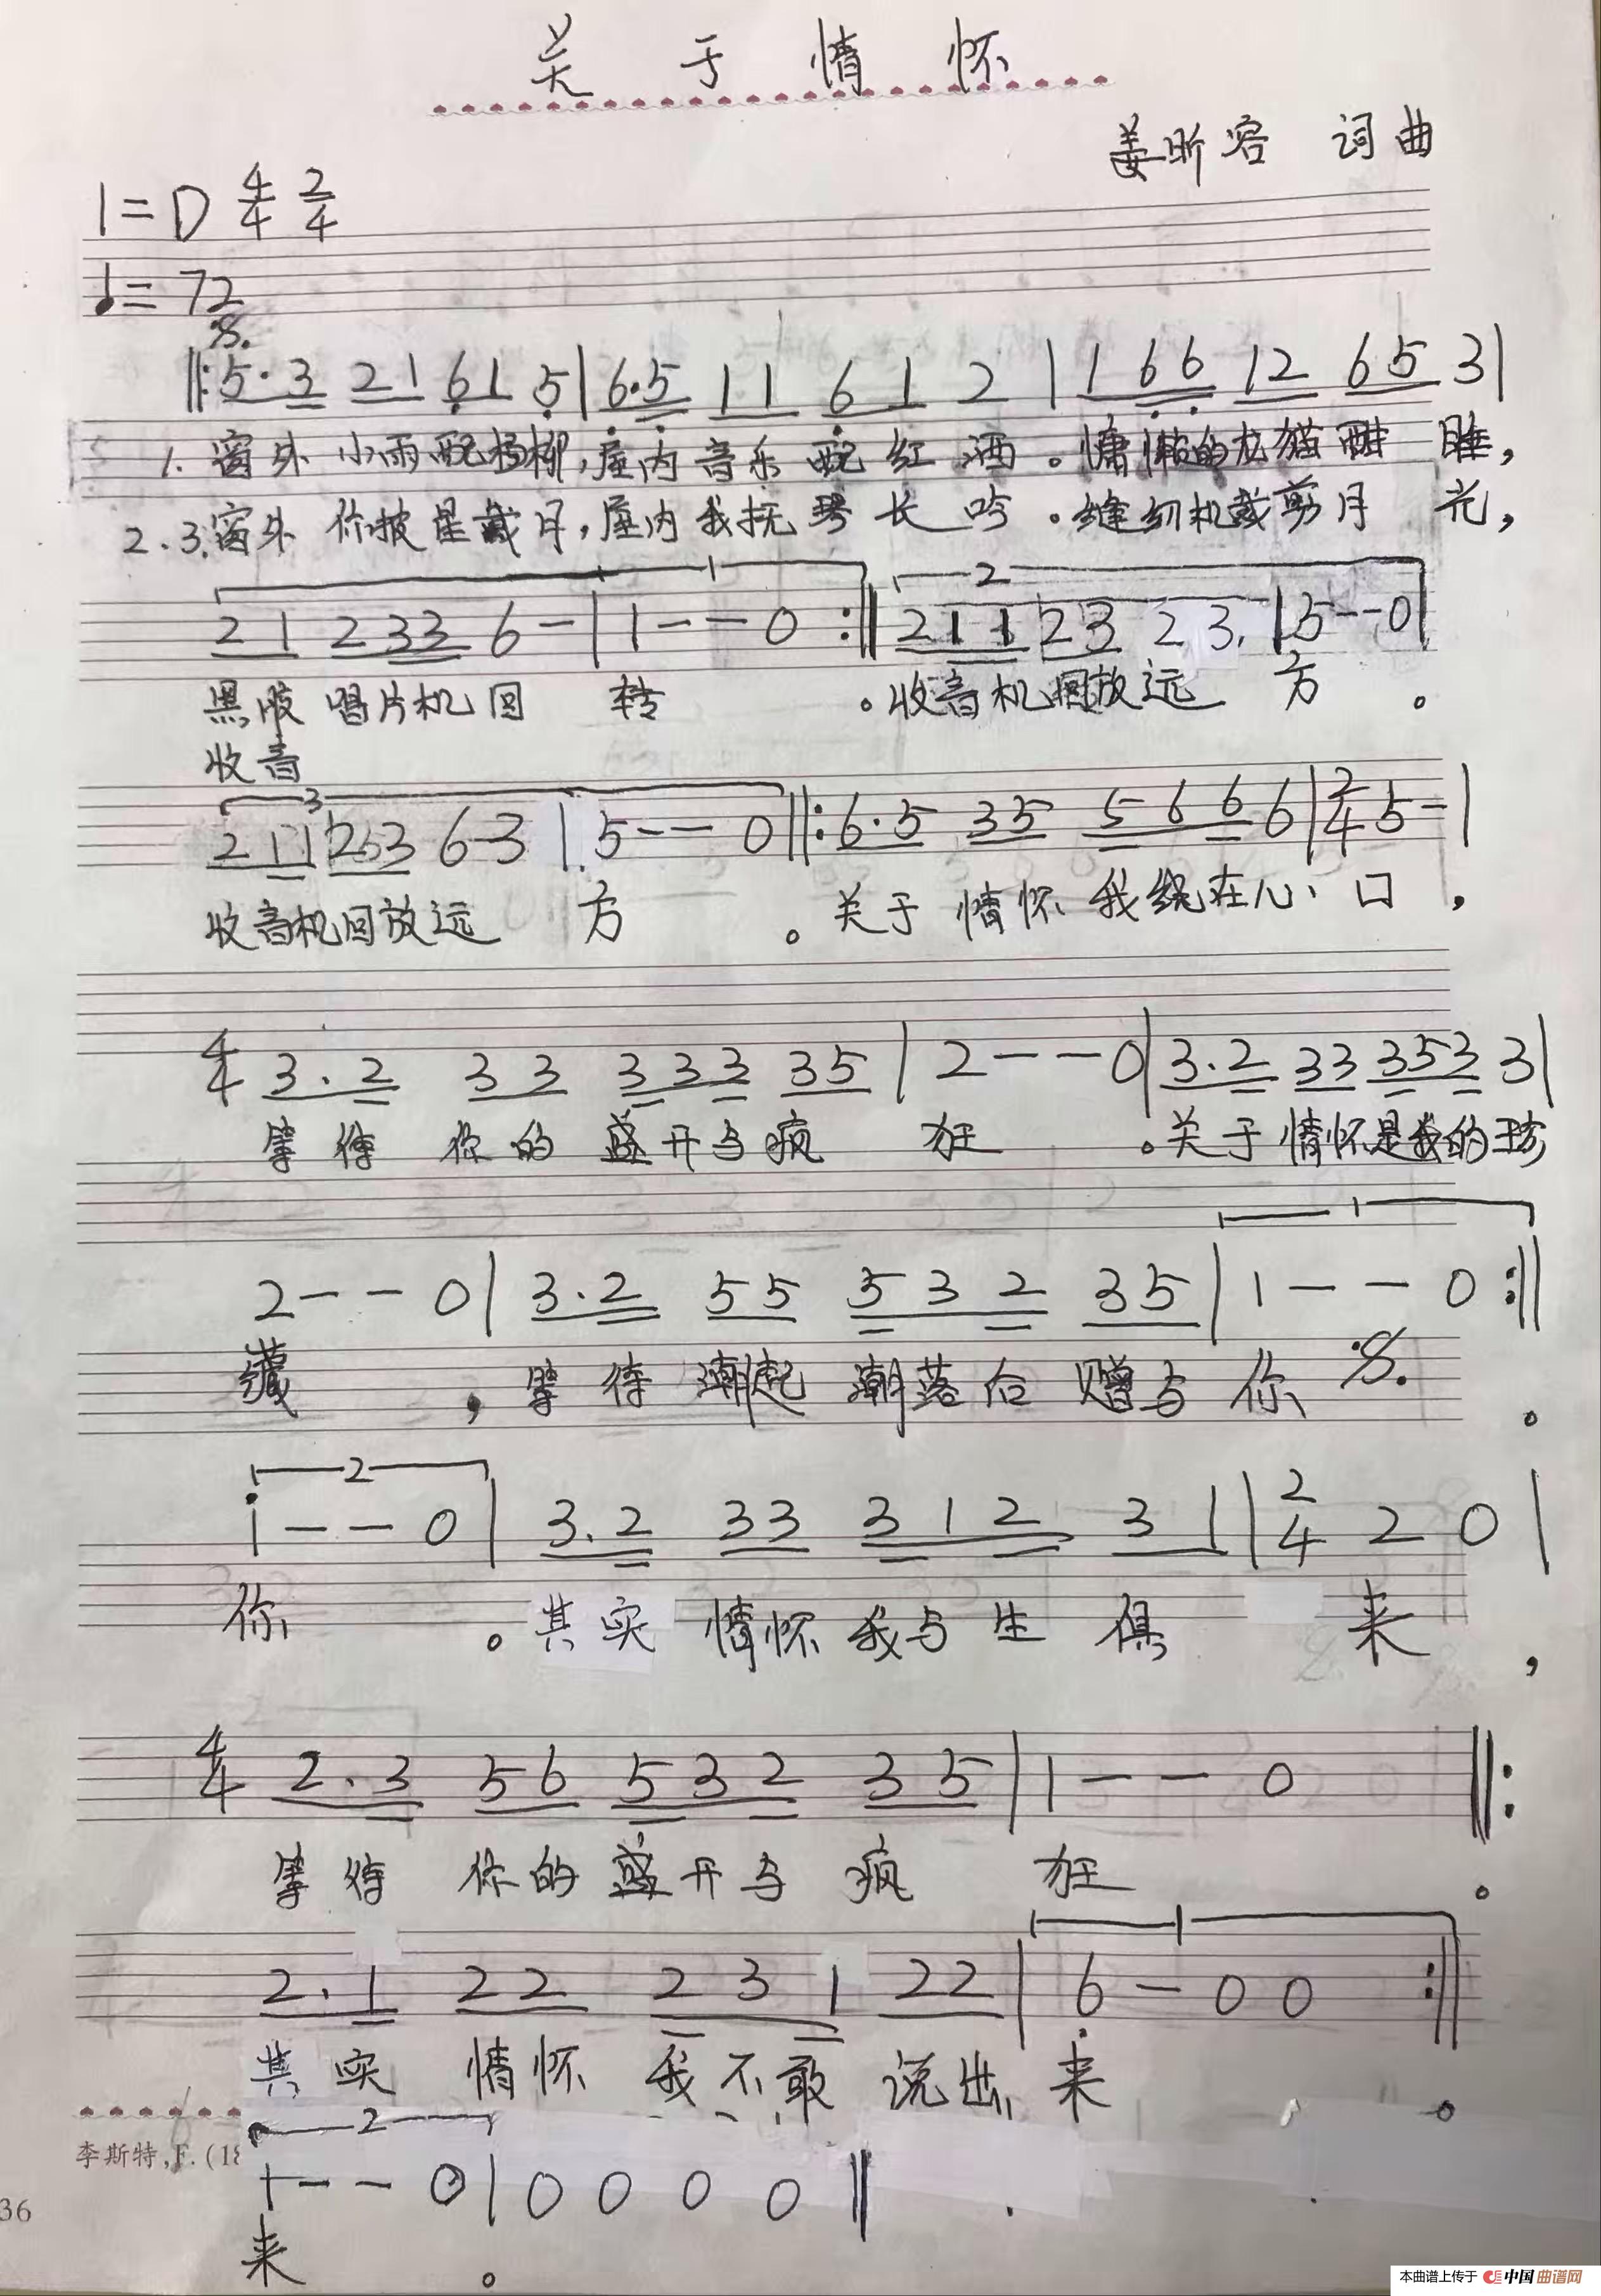 关于情怀
姜昕容 词曲
1=D 4/4 2/4
♩=72
𝄋
‖: 5·3 21 61 5 | 6·5 11 61 2 | 1 66 12 65 3 |
1. 窗外小雨配杨柳,屋内音乐配红酒。慵懒的龙猫酣睡,
2.3.窗外你披星戴月,屋内我抚琴长吟。缝纫机裁剪月光,
1 2
21 233 6- | 1--0 :‖ 211 23 23. | 5--0 |
黑胶唱片机回转。收音机回放远方。
收音
3
211 23 6-3 | 5--0 ‖: 6·5 35 566 6 | 2/4 5- |
收音机回放远方。关于情怀我绕在心口,
4/4 3·2 33 333 35 | 2--0 | 3·2 33 353 3 |
等待你的盛开与疯狂。关于情怀是我的珍
1
2--0 | 3·2 55 532 35 | 1--0 :‖
藏,等待潮起潮落后赠与你 𝄋 。
2
i--0 | 3·2 33 312 31 | 2/4 2 0 |
你。其实情怀我与生俱来,
4/4 2·3 56 532 35 | 1--0 ‖:
等待你的盛开与疯狂。
1
2·1 22 231 22 | 6-00 :‖
其实情怀我不敢说出来。
2
李斯特,F.(18
1--0 | 0 0 0 0 ‖
36
来。
本曲谱上传于 中国曲谱网